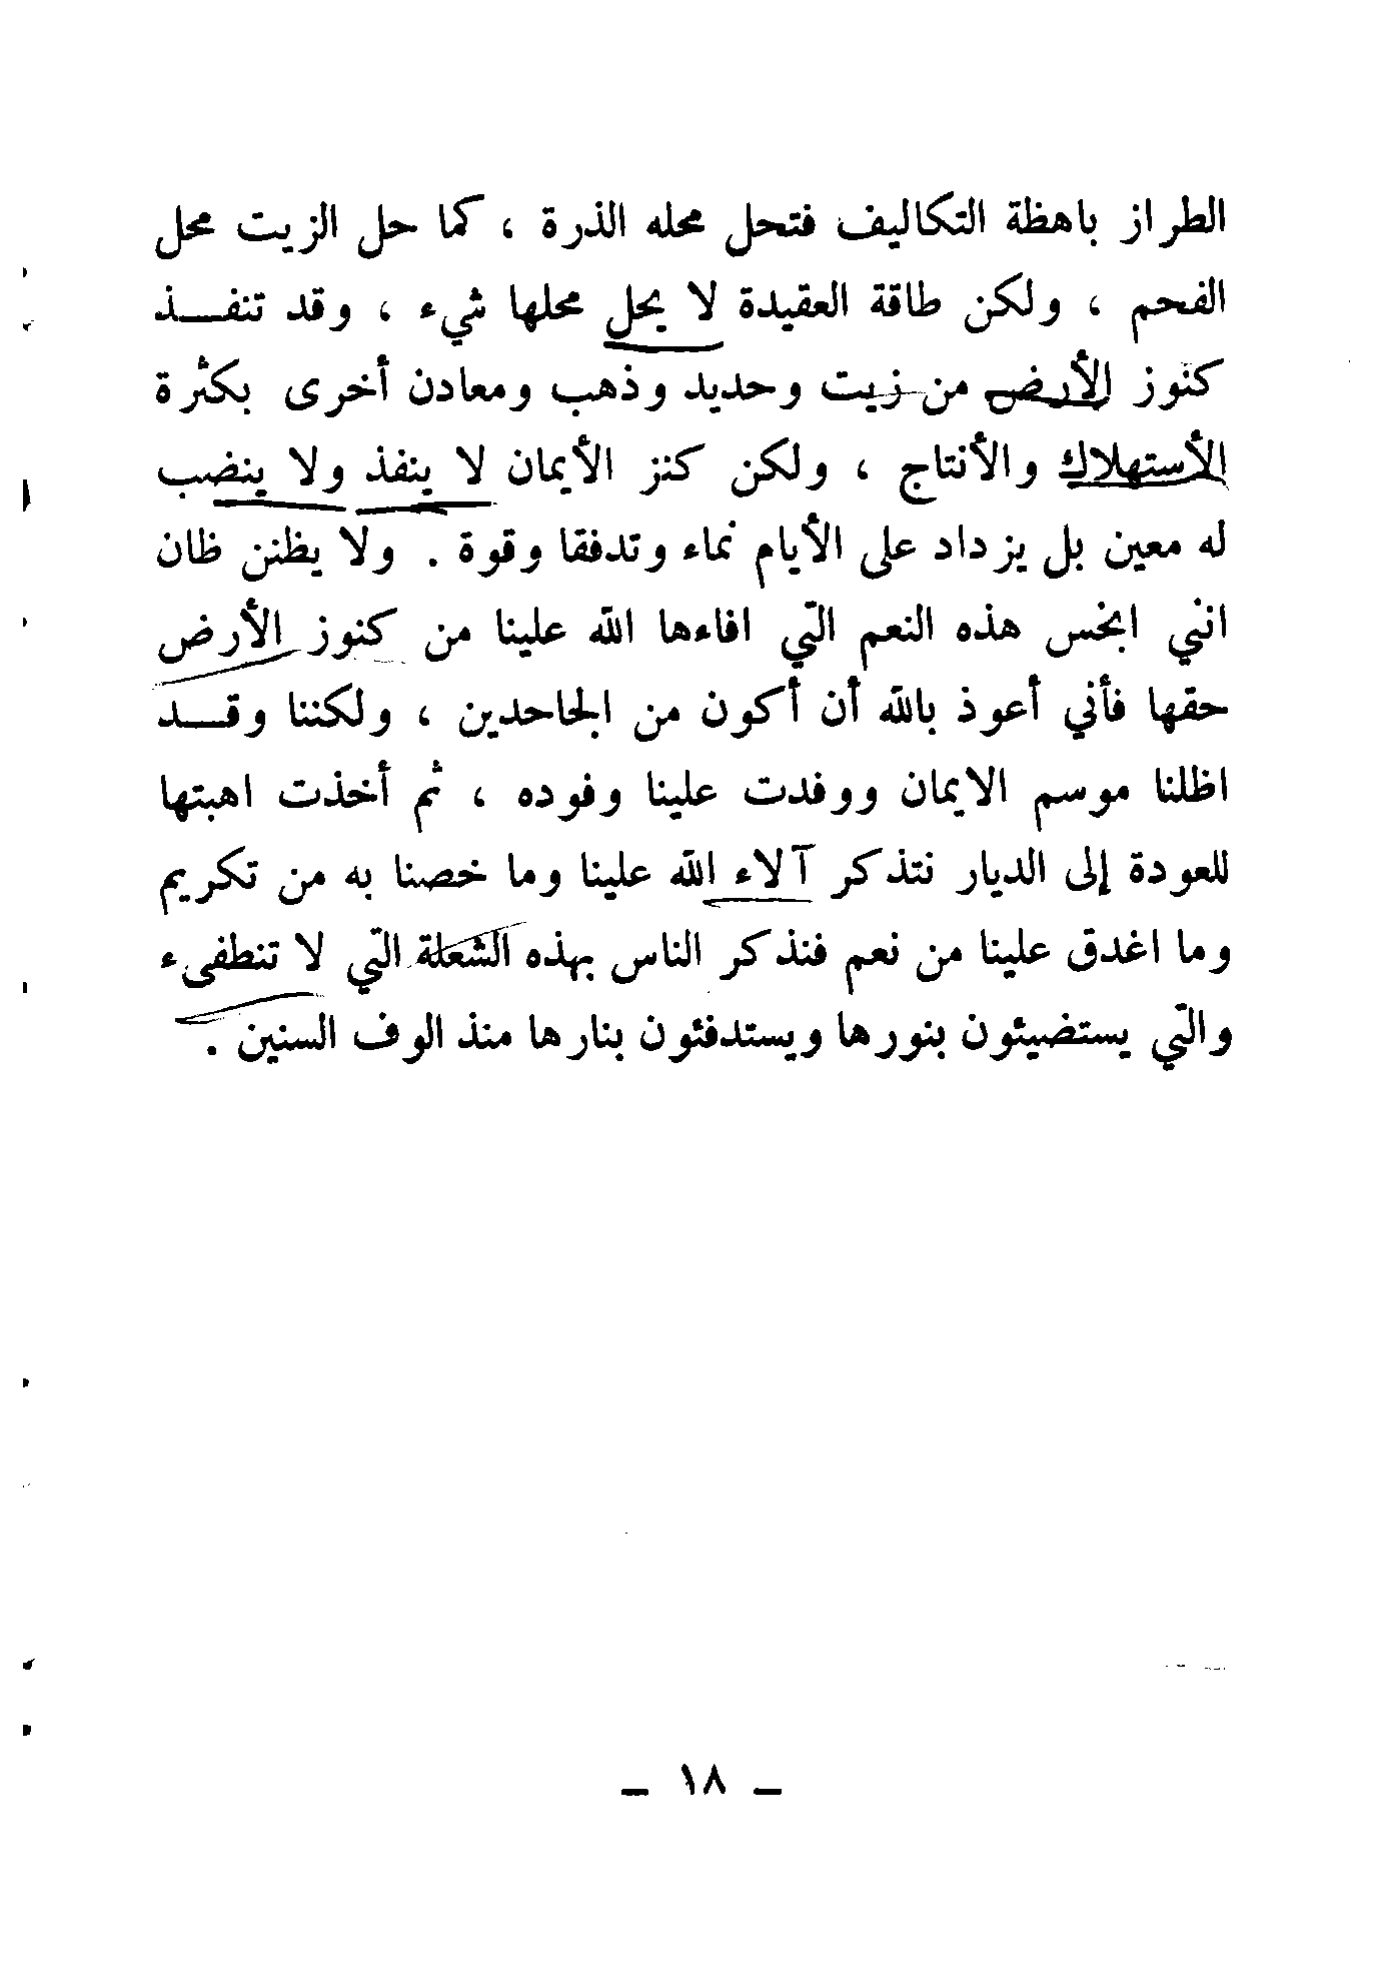 الطراز باهظة التكاليف فتحل محله الذرة ، كما حل الزيت محل
الفحم ، ولكن طاقة العقيدة لا يحل محلها شيء ، وقد تنفـــذ
كنوز الأرض من زيت وحديد وذهب ومعادن أخرى بكثرة
الأستهلاك والأنتاج ، ولكن كنز الأيمان لا ينفذ ولا ينضب
له معين بل يزداد على الأيام نماء وتدفقا وقوة . ولا يظنن ظان
انني ابخس هذه النعم التي افاءها الله علينا من كنوز الأرض
حقها فأني أعوذ بالله أن أكون من الجاحدين ، ولكننا وقـــد
اظلنا موسم الايمان ووفدت علينا وفوده ، ثم أخذت اهبتها
للعودة إلى الديار نتذكر آلاء الله علينا وما خصنا به من تكريم
وما اغدق علينا من نعم فنذكر الناس بهذه الشعلة التي لا تنطفىء
والتي يستضيئون بنورها ويستدفئون بنارها منذ الوف السنين .
ــ ١٨ ــ